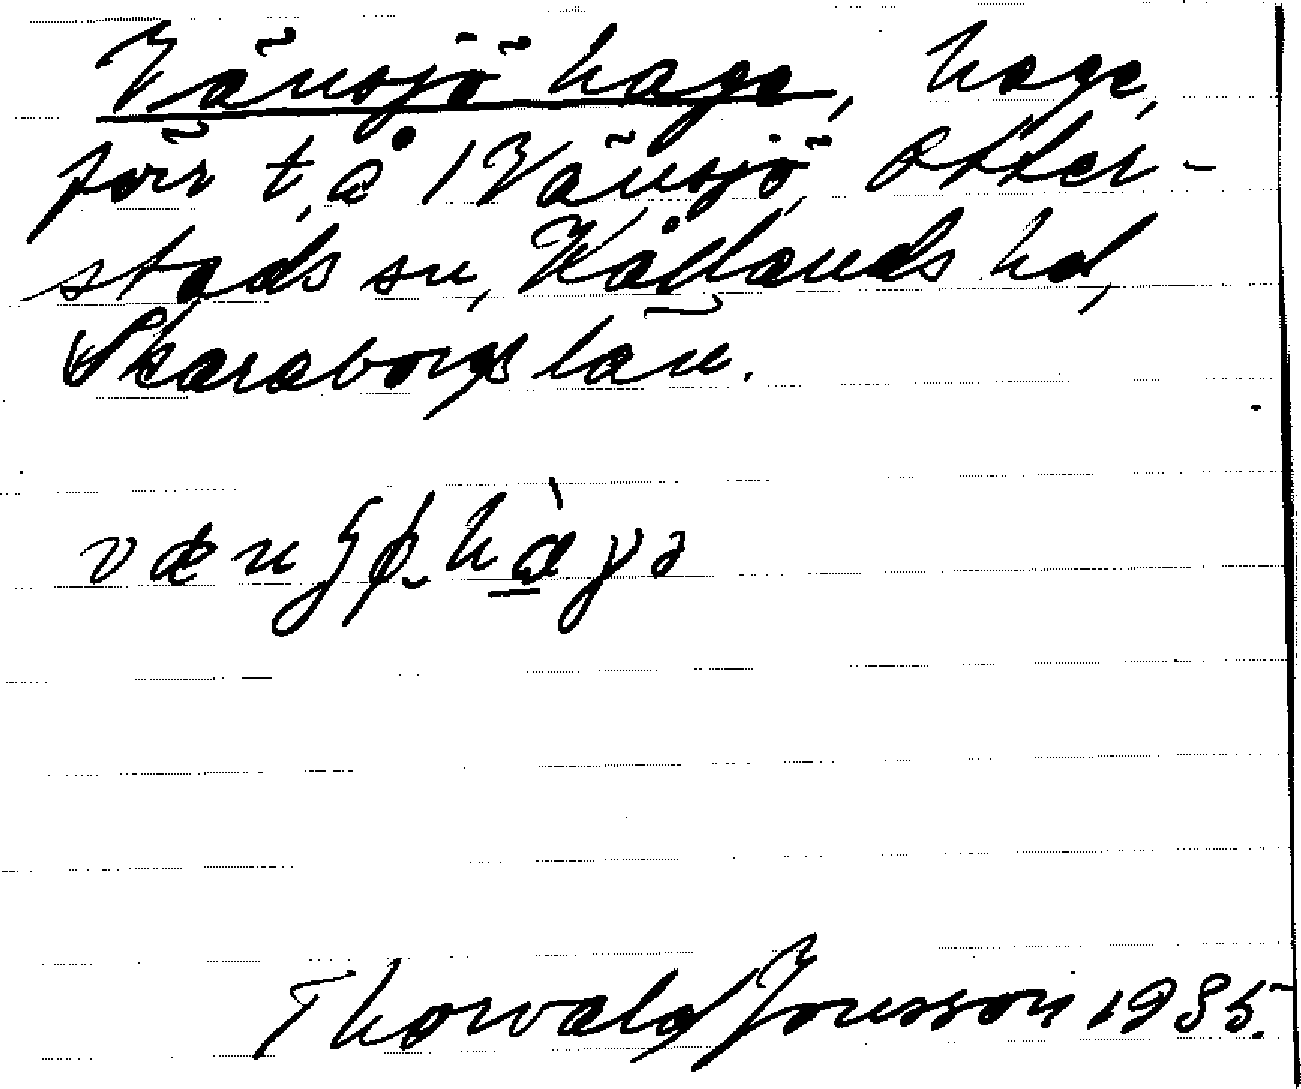 Vänsjö hage, hage,
förr t, å 1 Vänsjö, Otter-
stads sn, Kållands hd,
Skaraborgs län.
Thorvald Jonsson 1935.